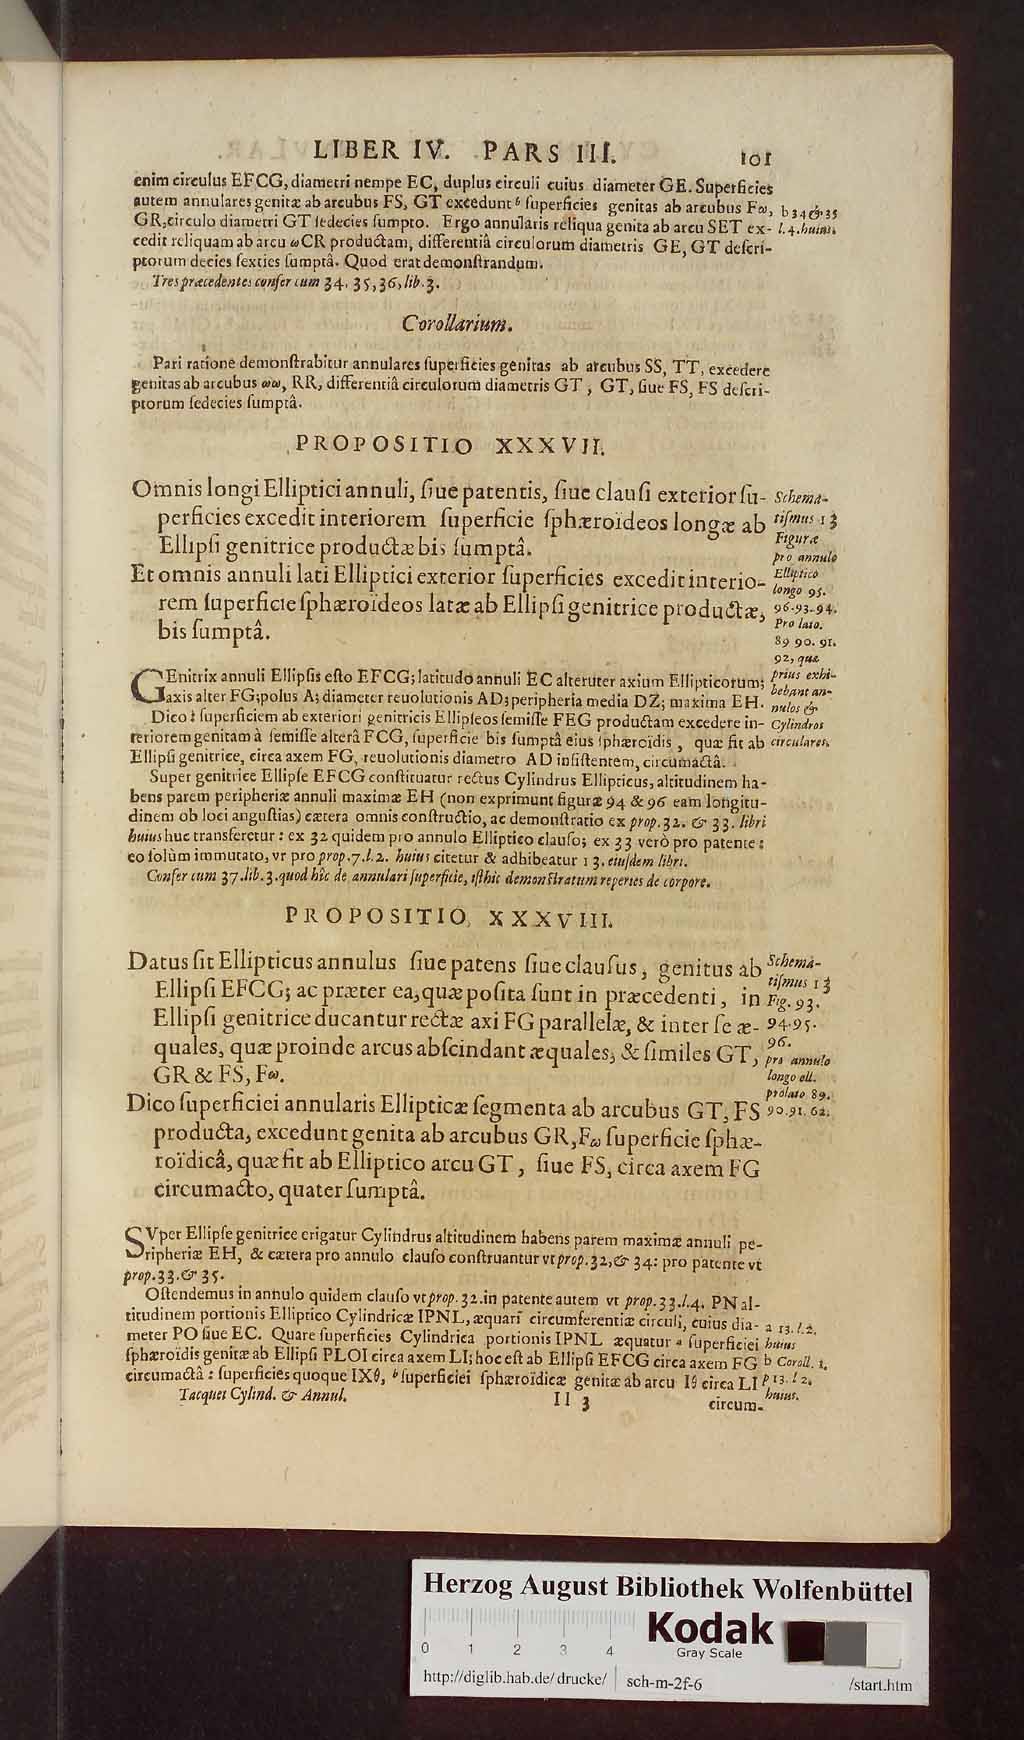 LIBER IV. PARS III. 101
enim circulus EFCG, diametri nempe EC, duplus circuli cuius diameter GE. Superficies
autem annulares genitæ ab arcubus FS, GT excedunt b superficies genitas ab arcubus Fω,
GR, circulo diametri GT sedecies sumpto. Ergo annularis reliqua genita ab arcu SET ex-
cedit reliquam ab arcu ωCR productam, differentiâ circulorum diametris GE, GT descri-
ptorum decies sexties sumptâ. Quod erat demonstrandum.
Tres præcedentes confer cum 34, 35, 36, lib. 3.
b 34 & 35
l. 4. huius.
Corollarium.
Pari ratione demonstrabitur annulares superficies genitas ab arcubus SS, TT, excedere
genitas ab arcubus ωω, RR, differentiâ circulorum diametris GT, GT, siue FS, FS descri-
ptorum sedecies sumptâ.
PROPOSITIO XXXVII.
Omnis longi Elliptici annuli, siue patentis, siue clausi exterior su-
perficies excedit interiorem superficie sphæroïdeos longæ ab
Ellipsi genitrice productæ bis sumptâ.
Et omnis annuli lati Elliptici exterior superficies excedit interio-
rem superficie sphæroïdeos latæ ab Ellipsi genitrice productæ,
bis sumptâ.
Schema-
tismus 13
Figuræ
pro annulo
Elliptico
longo 95.
96. 93. 94.
Pro lato.
89 90. 91.
92, quæ
prius exhi-
bebant an-
nulos &
Cylindros
circulares.
GEnitrix annuli Ellipsis esto EFCG; latitudo annuli EC alteruter axium Ellipticorum;
axis alter FG; polus A; diameter reuolutionis AD; peripheria media DZ; maxima EH.
Dico: superficiem ab exteriori genitricis Ellipseos semisse FEG productam excedere in-
teriorem genitam à semisse alterâ FCG, superficie bis sumptâ eius sphæroïdis, quæ fit ab
Ellipsi genitrice, circa axem FG, reuolutionis diametro AD insistentem, circumactâ.
Super genitrice Ellipse EFCG constituatur rectus Cylindrus Ellipticus, altitudinem ha-
bens parem peripheriæ annuli maximæ EH (non exprimunt figuræ 94 & 96 eam longitu-
dinem ob loci angustias) cætera omnis constructio, ac demonstratio ex prop. 32. & 33. libri
huius huc transferetur: ex 32 quidem pro annulo Elliptico clauso; ex 33 verò pro patente:
eo solùm immutato, vt pro prop. 7. l. 2. huius citetur & adhibeatur 13. eiusdem libri.
Confer cum 37. lib. 3. quod hîc de annulari superficie, isthic demonstratum reperies de corpore.
PROPOSITIO XXXVIII.
Datus sit Ellipticus annulus siue patens siue clausus, genitus ab
Ellipsi EFCG; ac præter ea, quæ posita sunt in præcedenti, in
Ellipsi genitrice ducantur rectæ axi FG parallelæ, & inter se æ-
quales, quæ proinde arcus abscindant æquales, & similes GT,
GR & FS, Fω.
Dico superficiei annularis Ellipticæ segmenta ab arcubus GT, FS
producta, excedunt genita ab arcubus GR, Fω superficie sphæ-
roïdicâ, quæ fit ab Elliptico arcu GT, siue FS, circa axem FG
circumacto, quater sumptâ.
Schema-
tismus 13
Fig. 93.
94. 95.
96.
pro annulo
longo ell.
pro lato 89.
90. 91. 62.
SVper Ellipse genitrice erigatur Cylindrus altitudinem habens parem maximæ annuli pe-
ripheriæ EH, & cætera pro annulo clauso construantur vt prop. 32, & 34: pro patente vt
prop. 33. & 35.
Ostendemus in annulo quidem clauso vt prop. 32. in patente autem vt prop. 33. l. 4. PN al-
titudinem portionis Elliptico Cylindricæ IPNL, æquari circumferentiæ circuli, cuius dia-
meter PO siue EC. Quare superficies Cylindrica portionis IPNL æquatur a superficiei
sphæroïdis genitæ ab Ellipsi PLOI circa axem LI; hoc est ab Ellipsi EFCG circa axem FG
circumactâ: superficies quoque IXθ, b superficiei sphæroïdicæ genitæ ab arcu Iθ circa LI
a 13. l. 2.
huius
b Coroll. 1.
p 13. l 2.
huius.
Tacquet Cylind. & Annul. II 3 circum-
Herzog August Bibliothek Wolfenbüttel
0 1 2 3 4
Kodak
Gray Scale
http://diglib.hab.de/drucke/ sch-m-2f-6 /start.htm